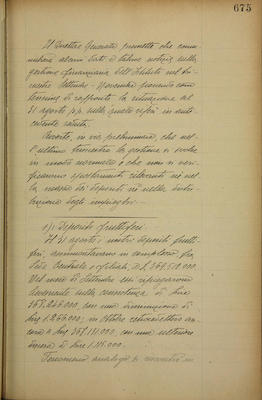 675
Il Direttore Generale premette che comu-
nicherà alcuni dati e talune notizie sulla
gestione finanziaria dell'Istituto nel bi-
mestre Settembre - Novembre ponendo come
termine di raffronto la situazione al
31 agosto p.p. sulla quale riferì in ante-
cedente seduta.
Avverte, in via preliminare, che nel-
l'ultimo trimestre la gestione si svolse
in modo normale e che non si veri-
ficarono spostamenti rilevanti nè nel-
la massa dei depositi nè nella distri-
buzione degli impieghi.
1) Depositi fruttiferi.
Il 31 agosto i nostri depositi frutti-
feri, ammontavano in complesso, fra
Sede Centrale e filiali, a L. 369.512.000
Nel mese di Settembre essi ripiegarono
lievemente sulla consistenza di lire
368.246.000, con una diminuzione di
lire 1.266.000; in ottobre retrocedettero an-
cora a lire 367.131.000, con una ulteriore
discesa di lire 1.115.000.
Fenomeno analogo si riscontrò in